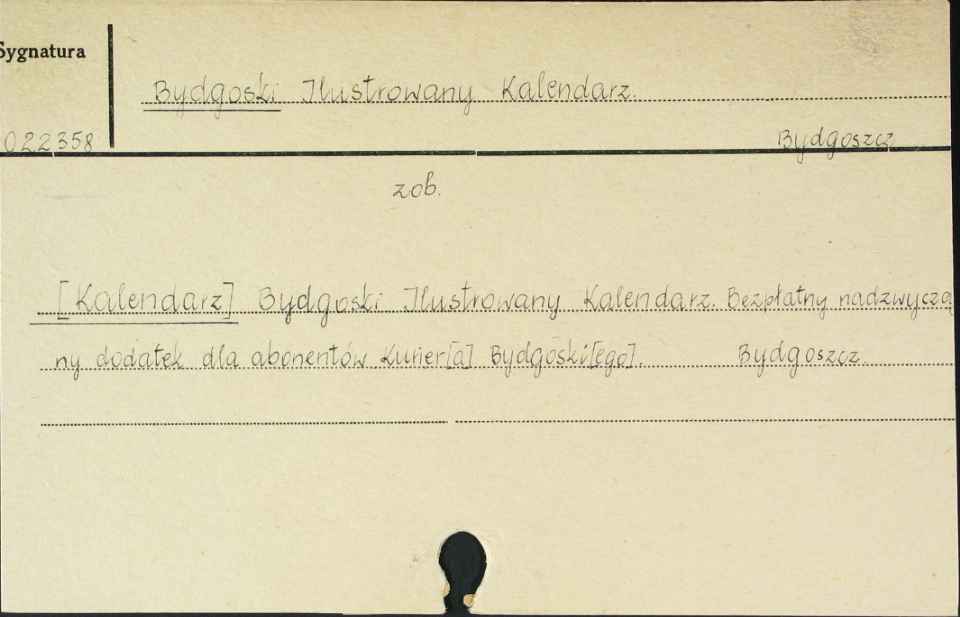 Sygnatura
Bydgoski Ilustrowany Kalendarz.
022358
Bydgoszcz
zob.
[Kalendarz] Bydgoski Ilustrowany Kalendarz. Bezpłatny nadzwycza
ny dodatek dla abonentów Kurier[a] Bydgoski[ego]. Bydgoszcz.